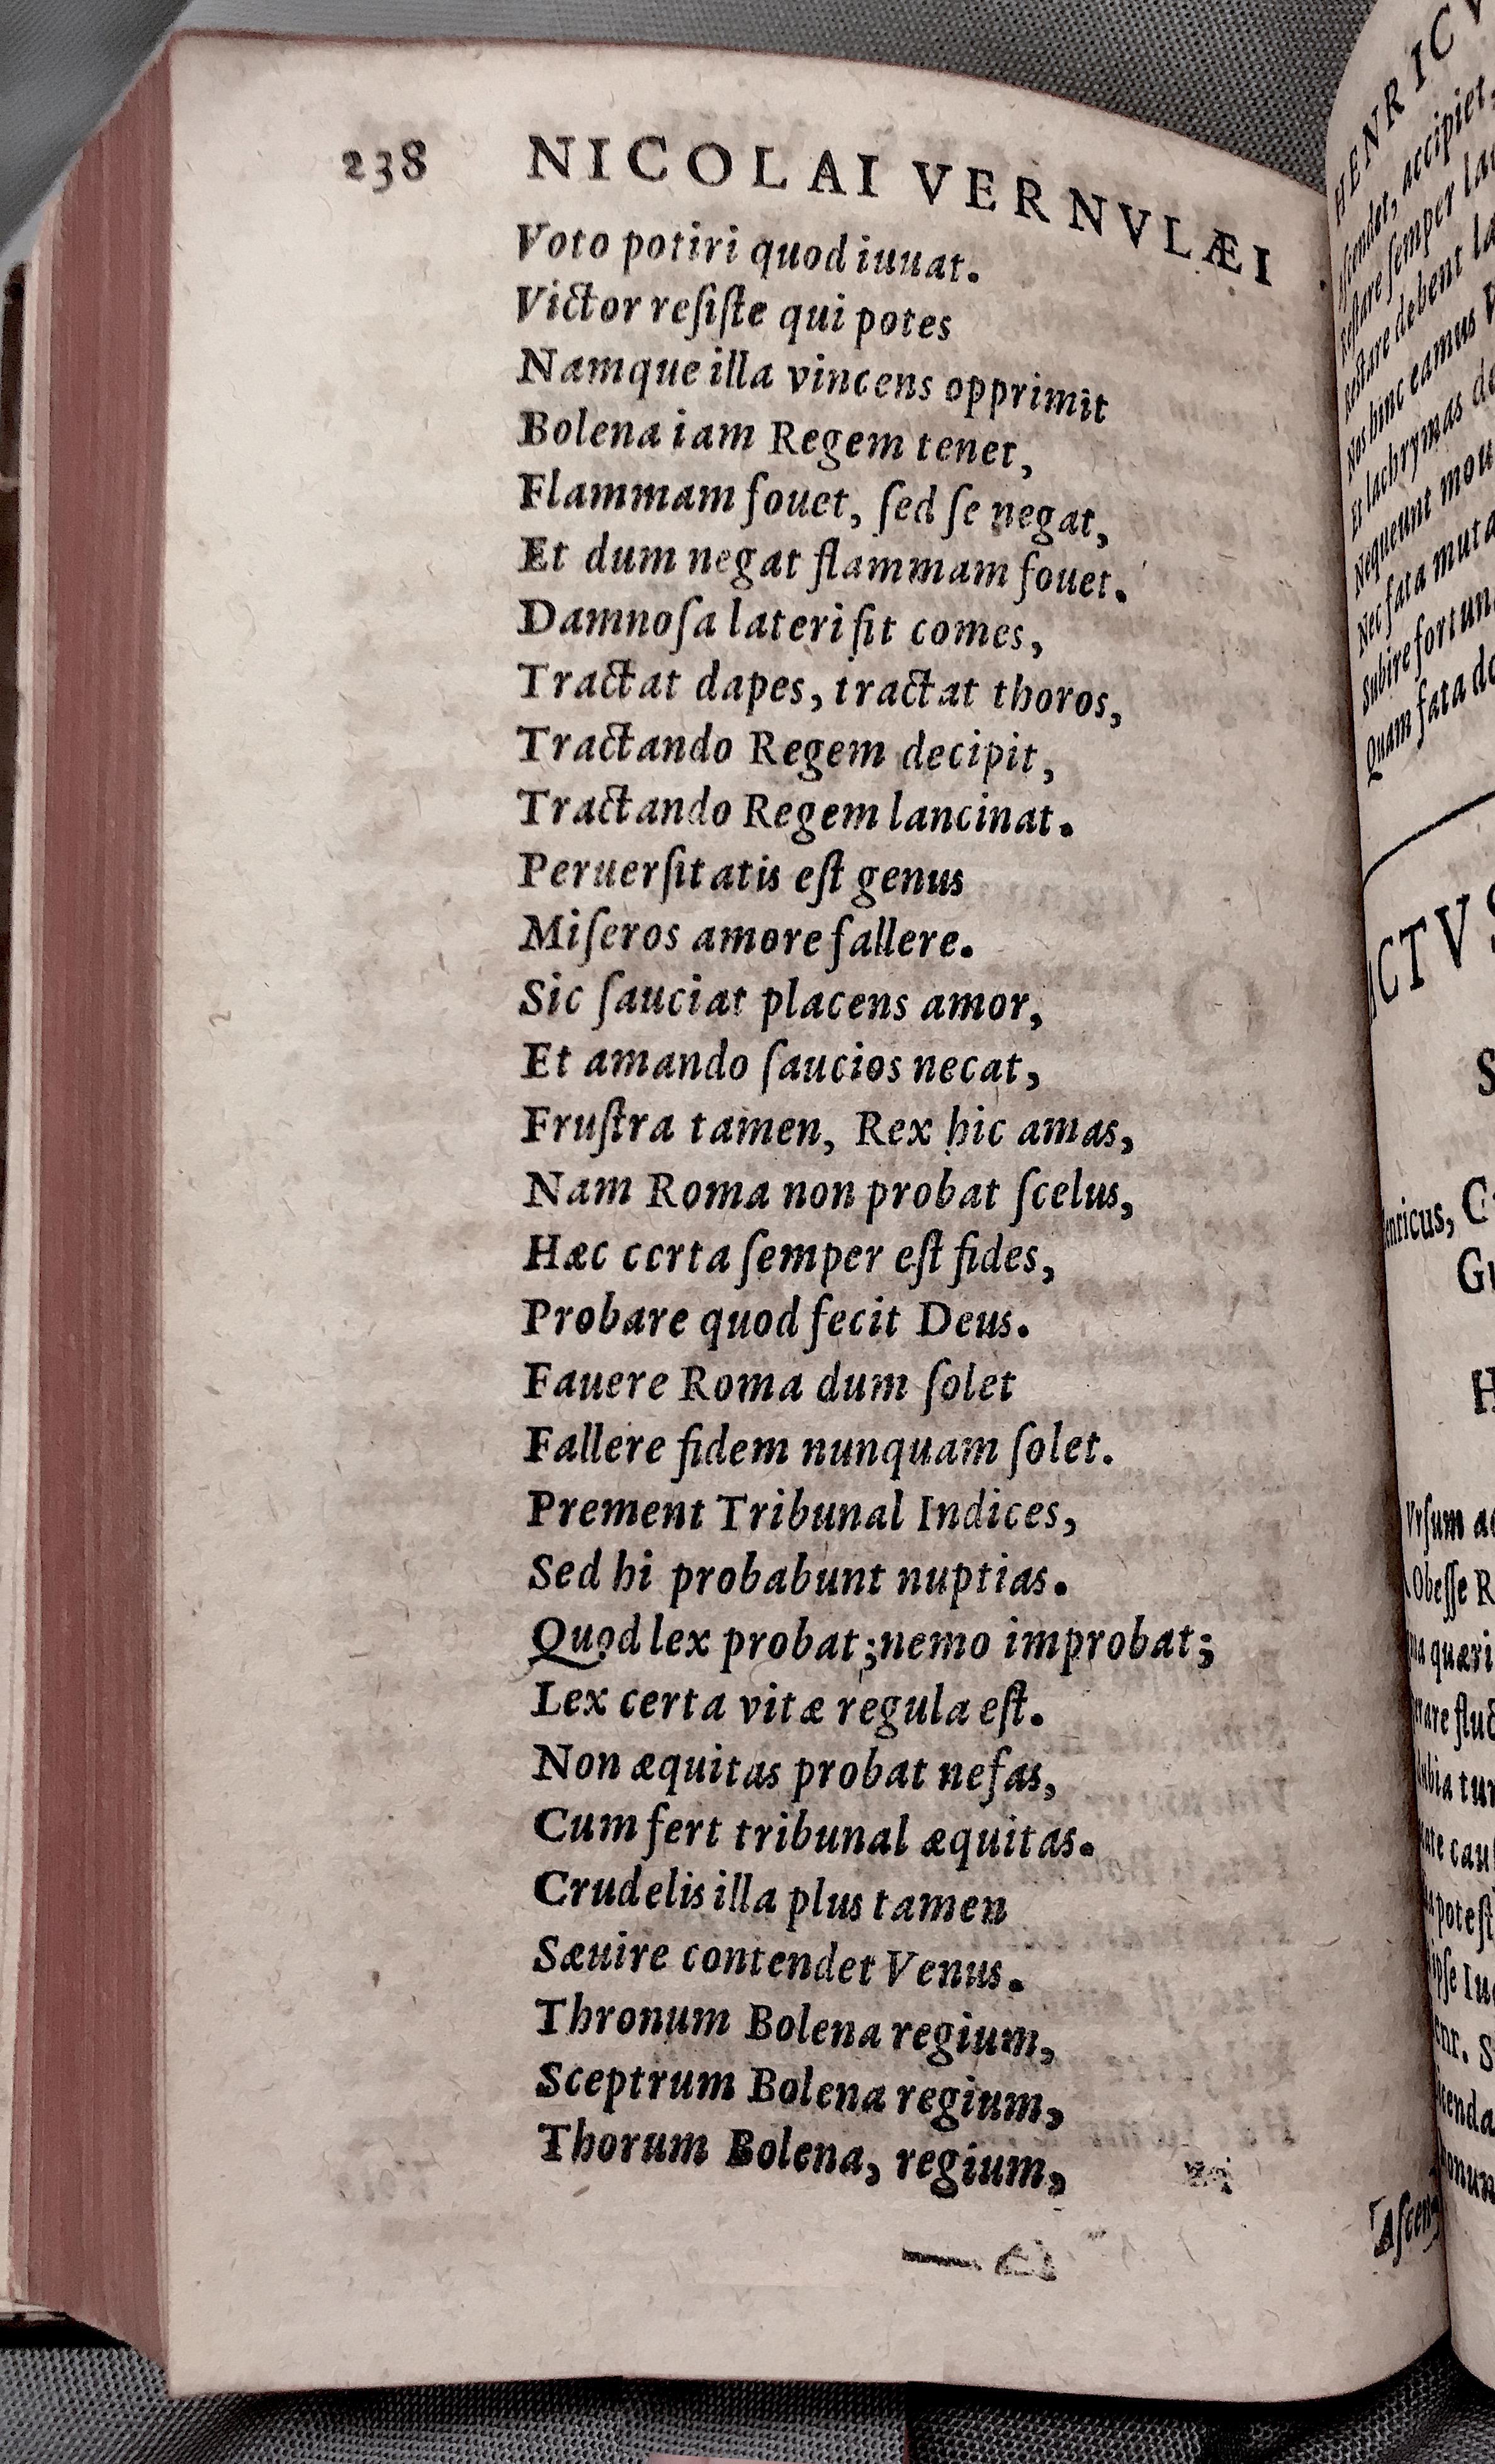 238 NICOLAI VERNVLÆI
Voto potiri quod iuuat.
Victor resiſte qui potes
Namque illa vincens opprimit
Bolena iam Regem tenet,
Flammam fouet, ſed ſe negat,
Et dum negat flammam fouet.
Damnoſa lateri ſit comes,
Tractat dapes, tractat thoros,
Tractando Regem decipit,
Tractando Regem lancinat.
Peruerſitatis eſt genus
Miſeros amore fallere.
Sic ſauciat placens amor,
Et amando ſaucios necat,
Fruſtra tamen, Rex hic amas,
Nam Roma non probat ſcelus,
Hæc certa ſemper eſt fides,
Probare quod fecit Deus.
Fauere Roma dum ſolet
Fallere fidem nunquam ſolet.
Prement Tribunal Indices,
Sed hi probabunt nuptias.
Quod lex probat; nemo improbat;
Lex certa vitæ regula eſt.
Non æquitas probat nefas,
Cum fert tribunal æquitas.
Crudelis illa plus tamen
Sæuire contendet Venus.
Thronum Bolena regium,
Sceptrum Bolena regium,
Thorum Bolena, regium,
HENRICV
accipiet,
ſemper
debent
Nos hinc eamus
Et lachrymas
Nequeunt
Nec fata
Subire
Quam fata
ACTVS
Vrſum
Obeſſe
Aſcen